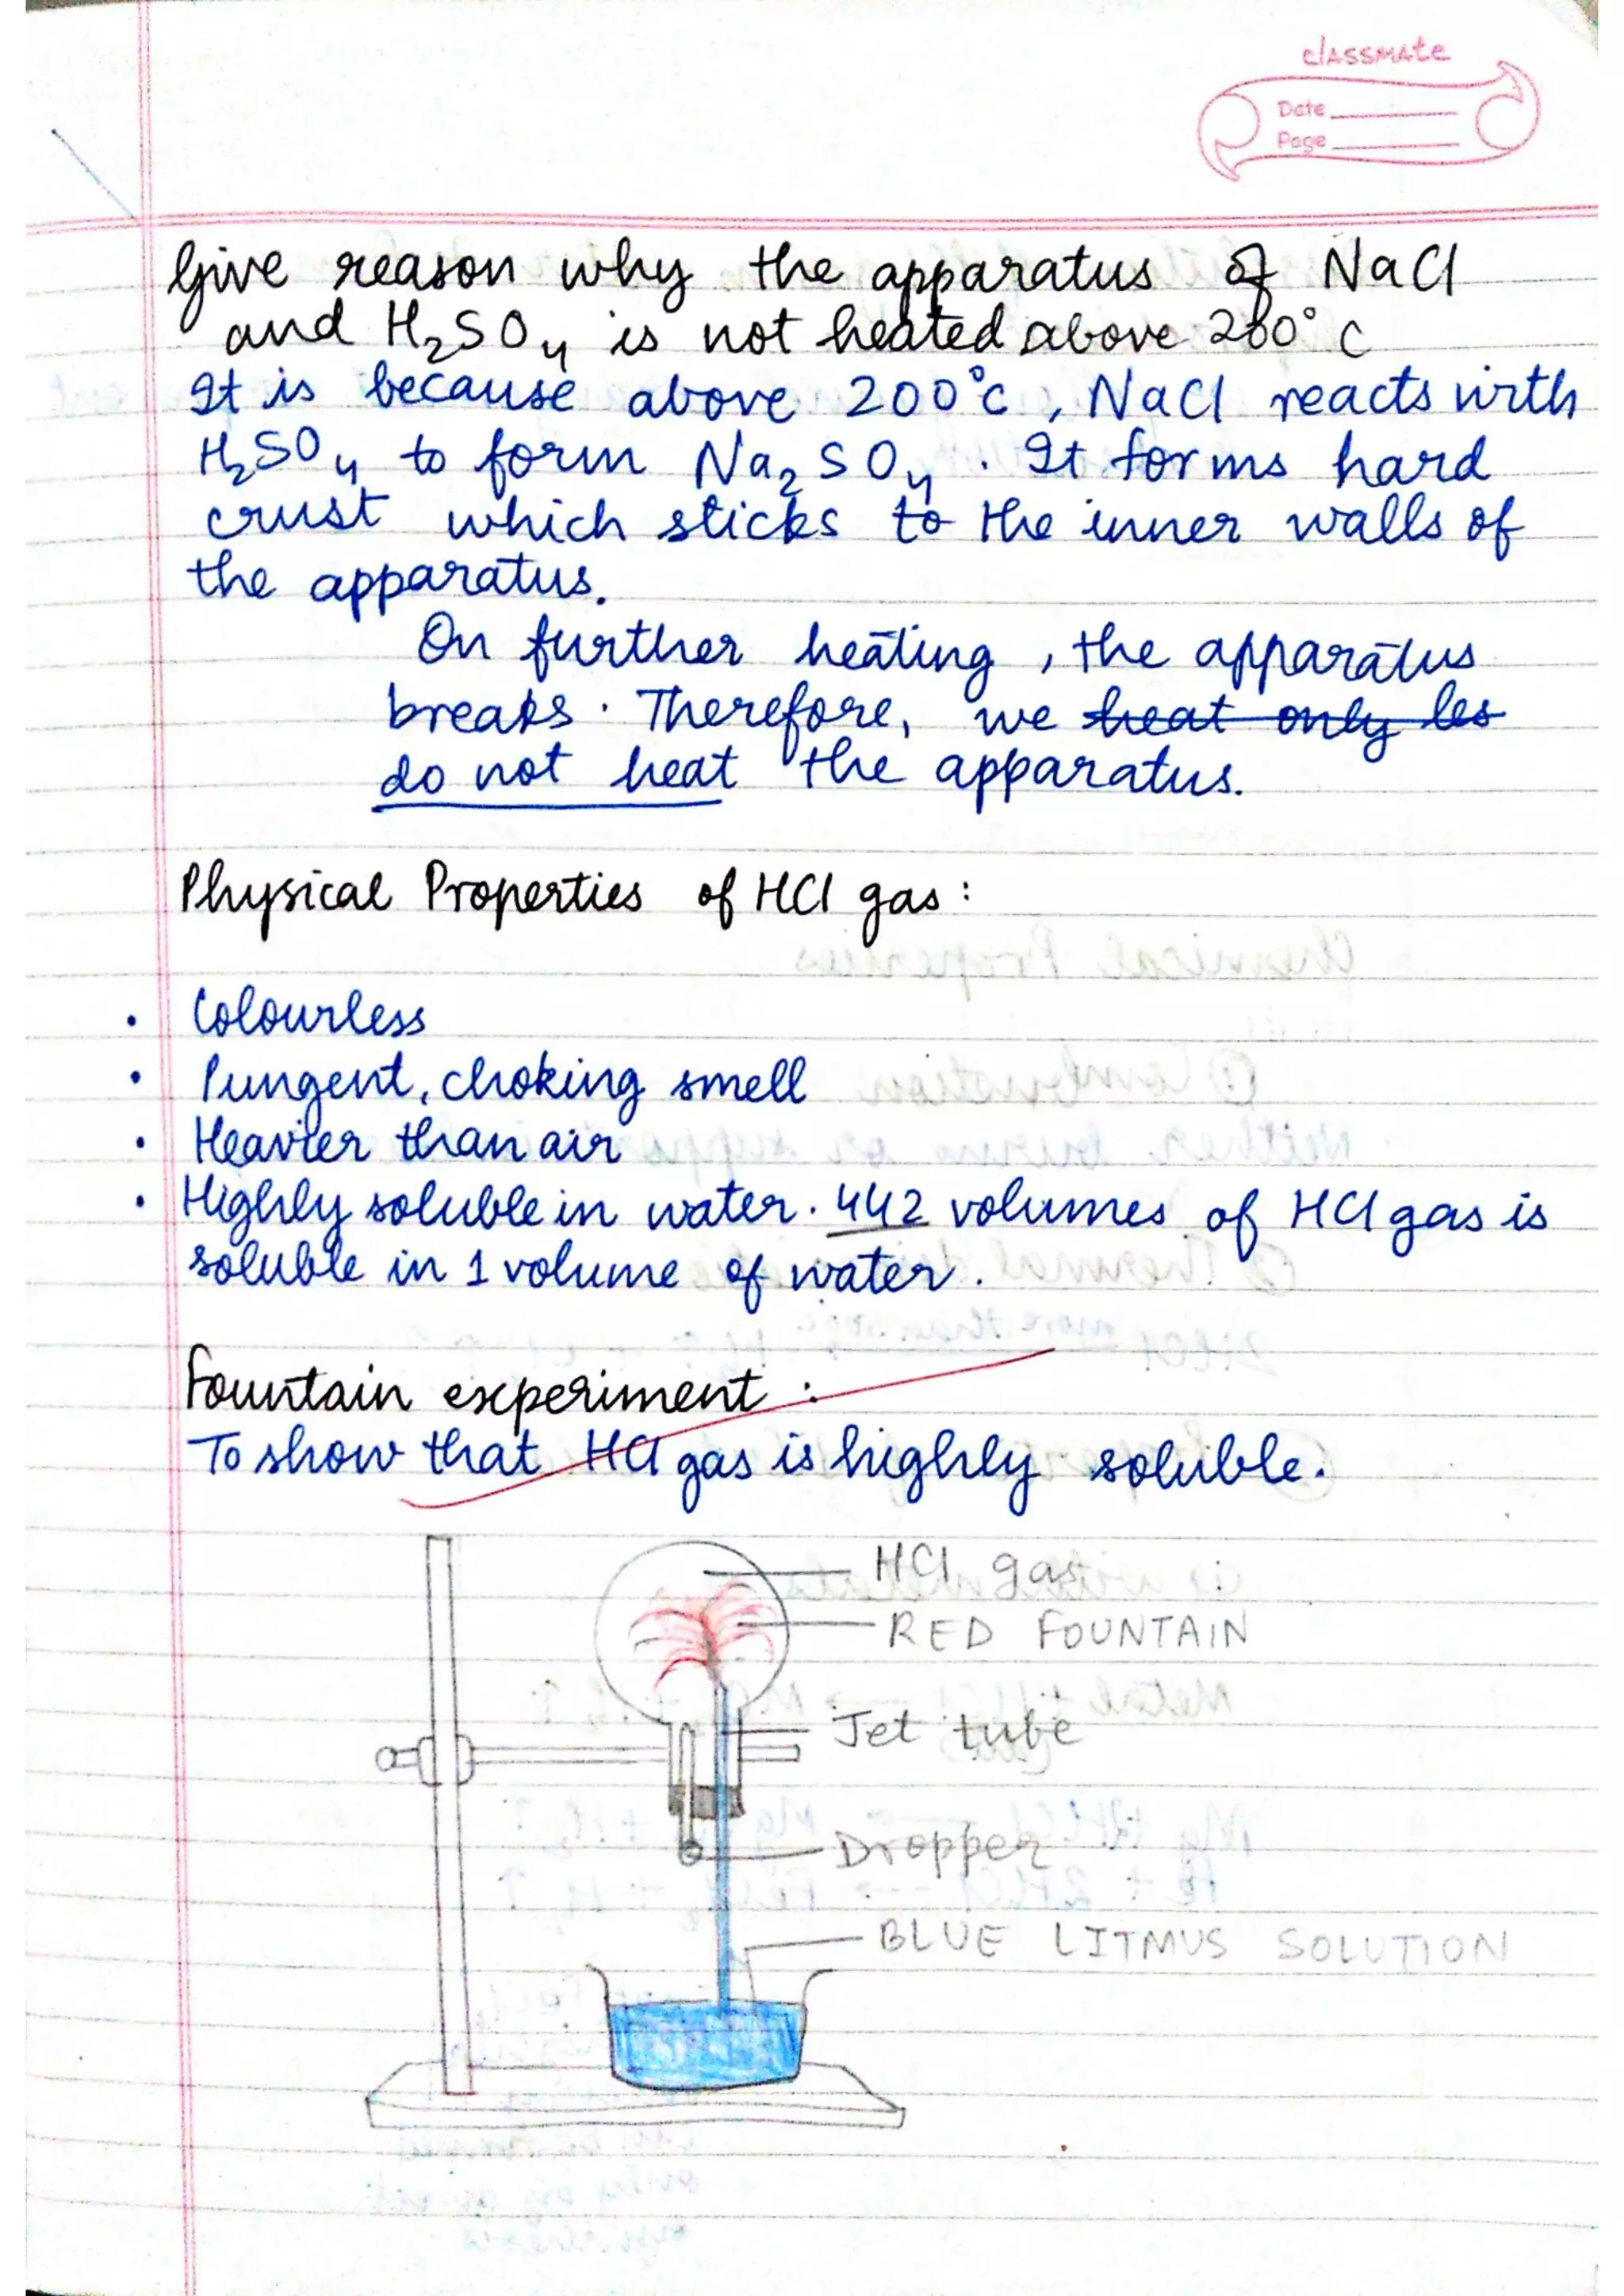 classmate
Date
Page
Give reason why the apparatus of NaCl
and H₂SO₄ is not heated above 200°C
It is because above 200°c, NaCl reacts with
H₂SO₄ to form Na₂SO₄. It forms hard
crust which sticks to the inner walls of
the apparatus.
On further heating, the apparatus
breaks. Therefore, we heat only les
do not heat the apparatus.
Physical Properties of HCl gas:
• Colourless
• Pungent, choking smell
• Heavier than air
• Highly soluble in water. 442 volumes of HCl gas is
soluble in 1 volume of water.
Fountain experiment:
To show that HCl gas is highly soluble.
HCl gas
RED FOUNTAIN
Jet tube
Dropper
BLUE LITMUS SOLUTION